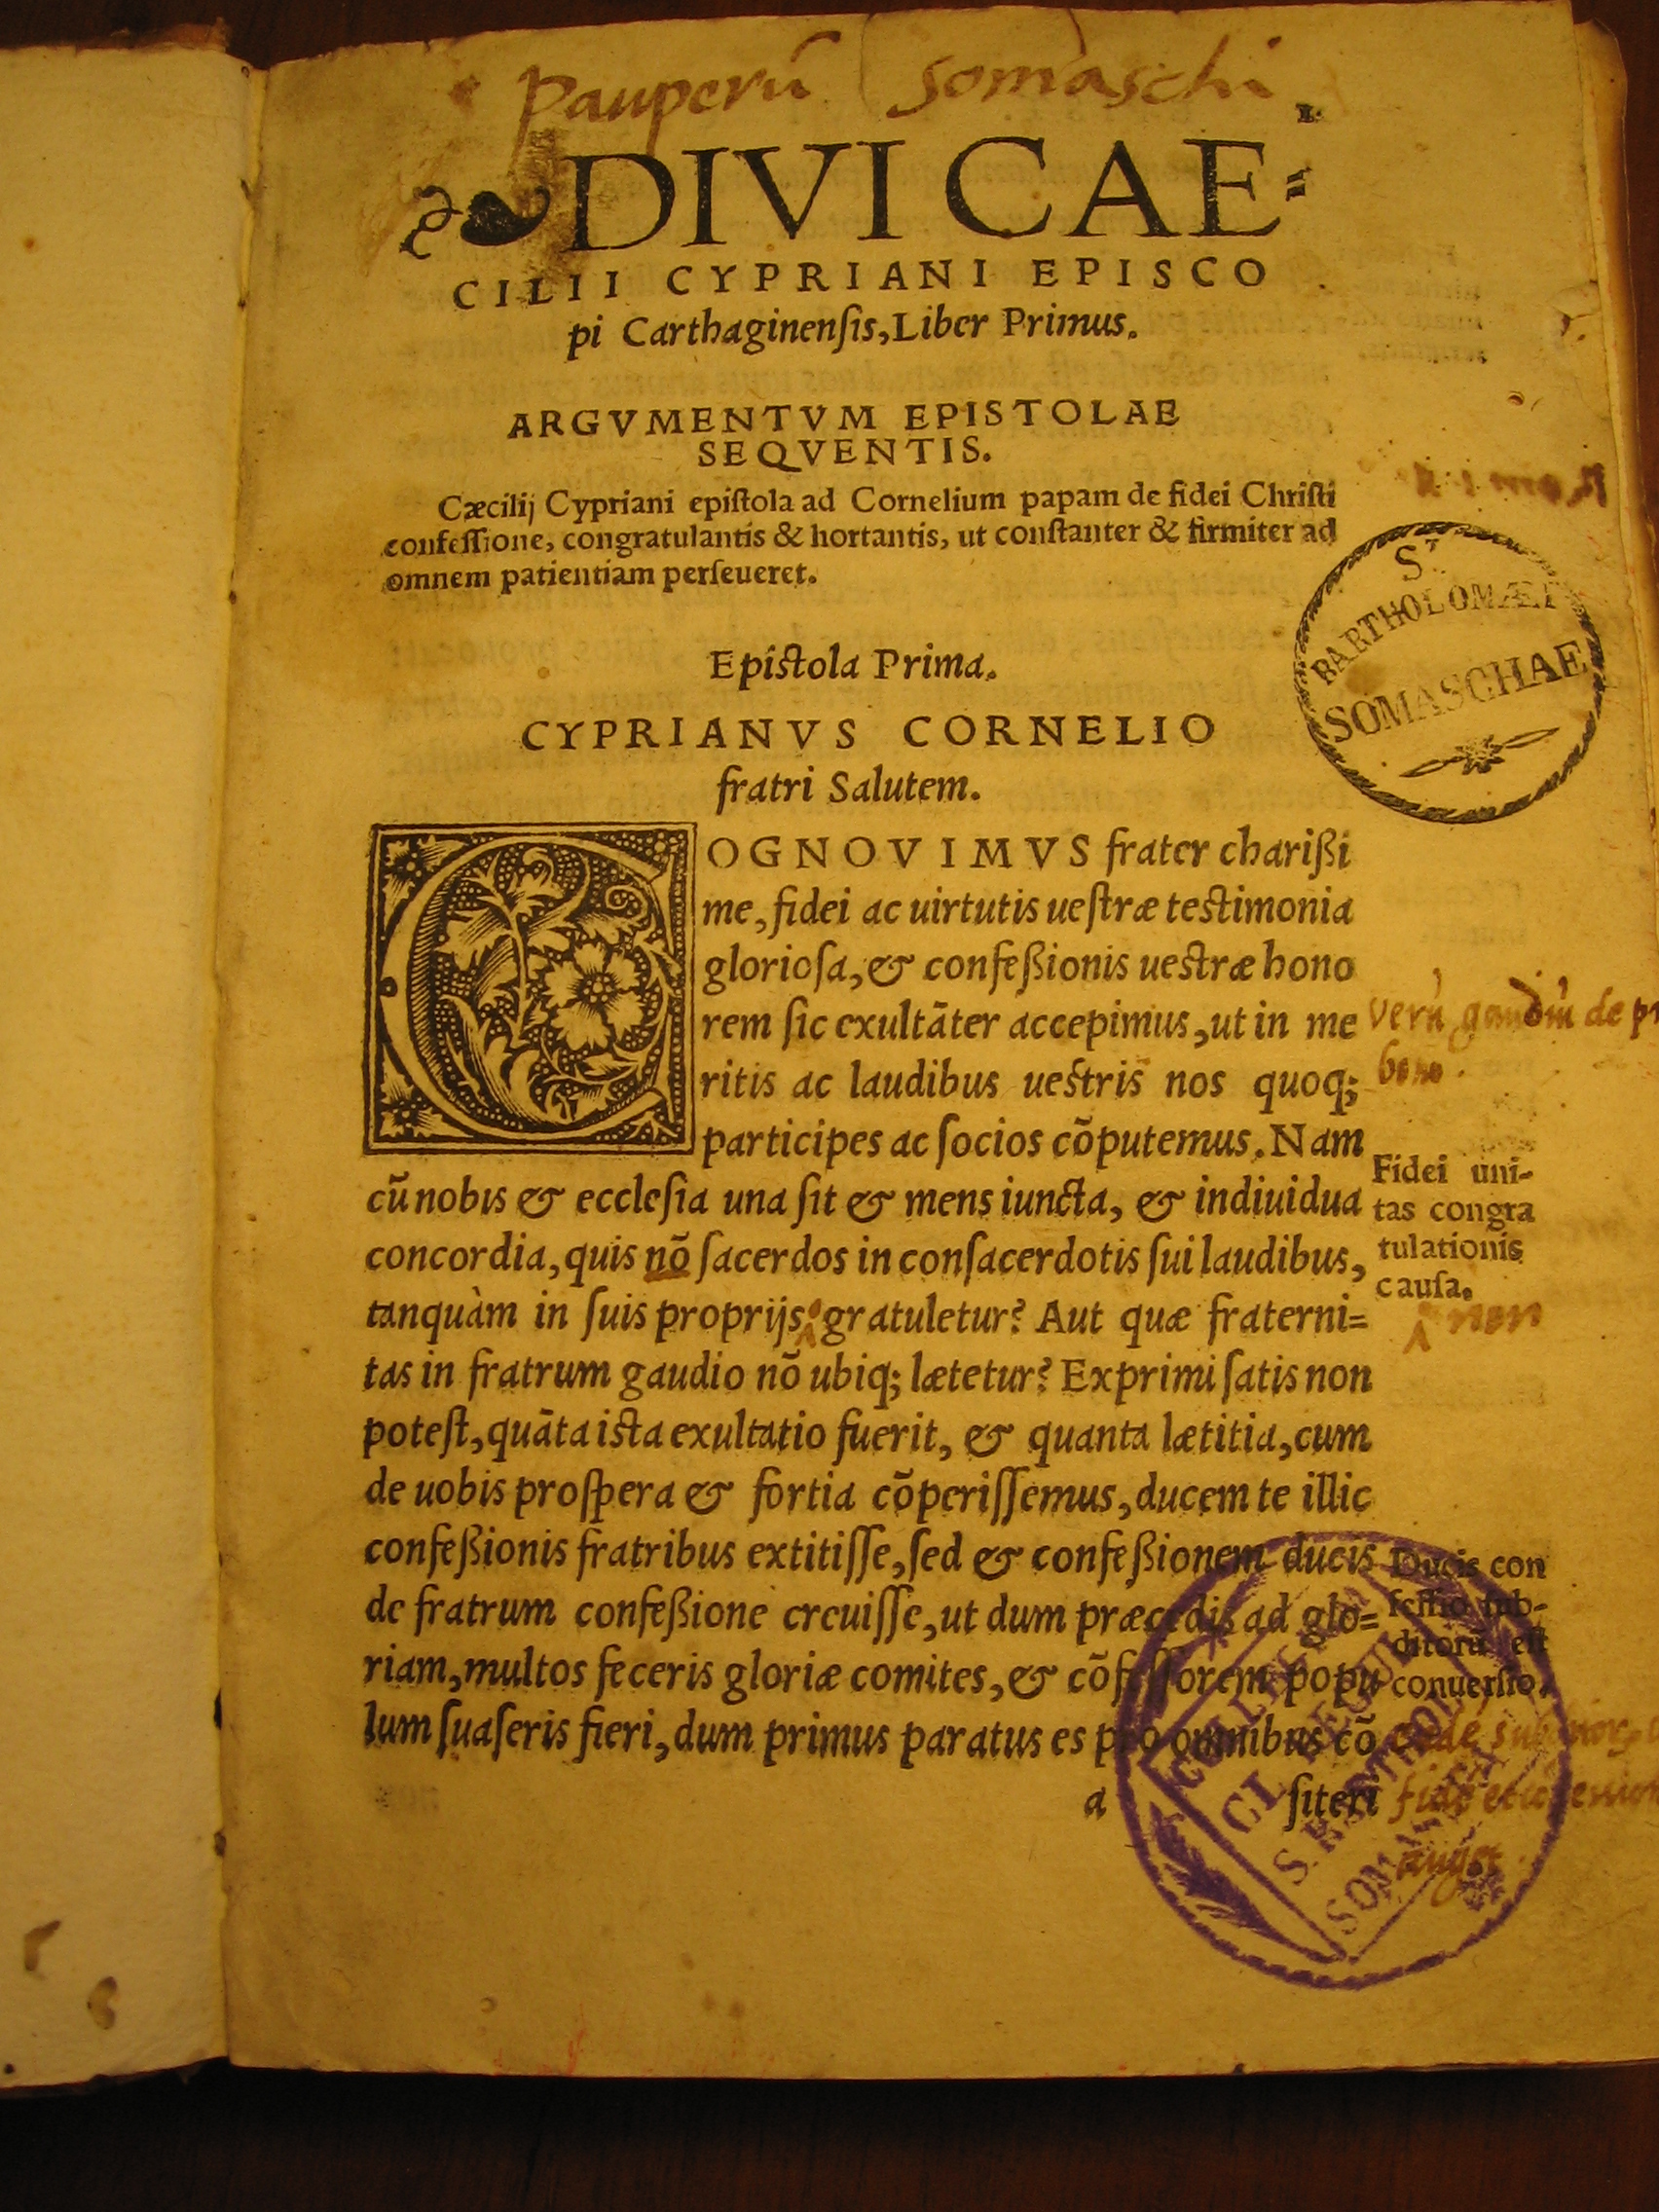 Pauperũ Somaschi
1.
DIVI CAE=
CILII CYPRIANI EPISCO
pi Carthaginenſis, Liber Primus.
ARGVMENTVM EPISTOLAE
SEQVENTIS.
Cæcilij Cypriani epiſtola ad Cornelium papam de fidei Chriſti
confeſſione, congratulantis & hortantis, ut conſtanter & firmiter ad
omnem patientiam perſeueret.
S.T
BARTHOLOMÆI
SOMASCHAE
Epiſtola Prima.
CYPRIANVS CORNELIO
fratri Salutem.
COGNOVIMVS frater charißi
me, fidei ac uirtutis ueſtræ teſtimonia
glorioſa, & confeßionis ueſtræ hono
rem ſic exultãter accepimus, ut in me
ritis ac laudibus ueſtris nos quoq;
participes ac ſocios cõputemus. Nam
cũ nobis & eccleſia una ſit & mens iuncta, & indiuidua
concordia, quis nõ ſacerdos in conſacerdotis ſui laudibus,
tanquàm in ſuis proprijs gratuletur? Aut quæ fraterni=
tas in fratrum gaudio nõ ubiq; lætetur? Exprimi ſatis non
poteſt, quãta iſta exultatio fuerit, & quanta lætitia, cum
de uobis proſpera & fortia cõperiſſemus, ducem te illic
confeßionis fratribus extitiſſe, ſed & confeßionem ducis
de fratrum confeßione creuiſſe, ut dum præcedis ad glo=
riam, multos feceris gloriæ comites, & cõfeſſorem popu
lum ſuaſeris fieri, dum primus paratus es pro omnibus cõ
a ſiteri
verũ gaudiũ de
bono.
Fidei uni-
tas congra
tulationis
cauſa.
non
Ducis con
feſſio ſub-
ditorũ eſt
conuerſio.
S. BARTHOL
SOMASCA